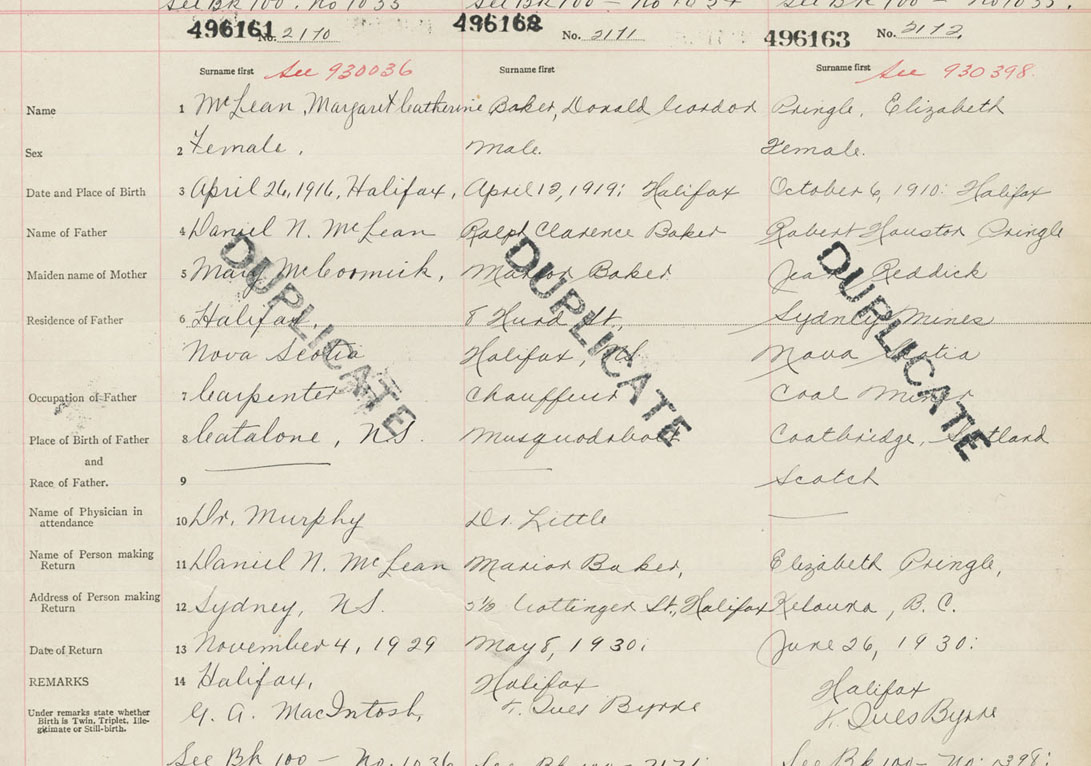 See Bk 100. No 1033 See Bk 100 - No 1034 See Bk 100 - No 1035.
496161 No. 2170 496162 No. 2171 496163 No. 2172.
Surname first See 930036 Surname first Surname first See 930398.
Name 1 McLean, Margaret Catherine Baker, Donald Gordon Pringle, Elizabeth
Sex 2 Female, Male. Female.
Date and Place of Birth 3 April 26, 1916, Halifax, April 12, 1919: Halifax October 6, 1910: Halifax
Name of Father 4 Daniel N. McLean Ralph Clarence Baker Robert Houston Pringle
Maiden name of Mother 5 Mary McCormick, Marion Baker Jean Reddick
Residence of Father 6 Halifax, 8 Hurd St, Sydney Mines
Nova Scotia Halifax, Nova Scotia
Occupation of Father 7 Carpenter Chauffeur Coal Miner
Place of Birth of Father 8 Catalone, N.S. Musquodoboit Coatbridge, Scotland
and
Race of Father. 9 Scotch
Name of Physician in
attendance 10 Dr. Murphy Dr. Little
Name of Person making
Return 11 Daniel N. McLean Marion Baker, Elizabeth Pringle,
Address of Person making
Return 12 Sydney, N.S. Gottingen St, Halifax Kelowna, B.C.
Date of Return 13 November 4, 1929 May 8, 1930: June 26, 1930:
REMARKS 14 Halifax, Halifax Halifax
Under remarks state whether
Birth is Twin, Triplet, Ille-
gitimate or Still-birth.
G. A. MacIntosh, Ives Byrne Ives Byrne
See Bk 100 - No. 1036 See Bk 100 - 2171 See Bk 100 - No.
DUPLICATE DUPLICATE DUPLICATE